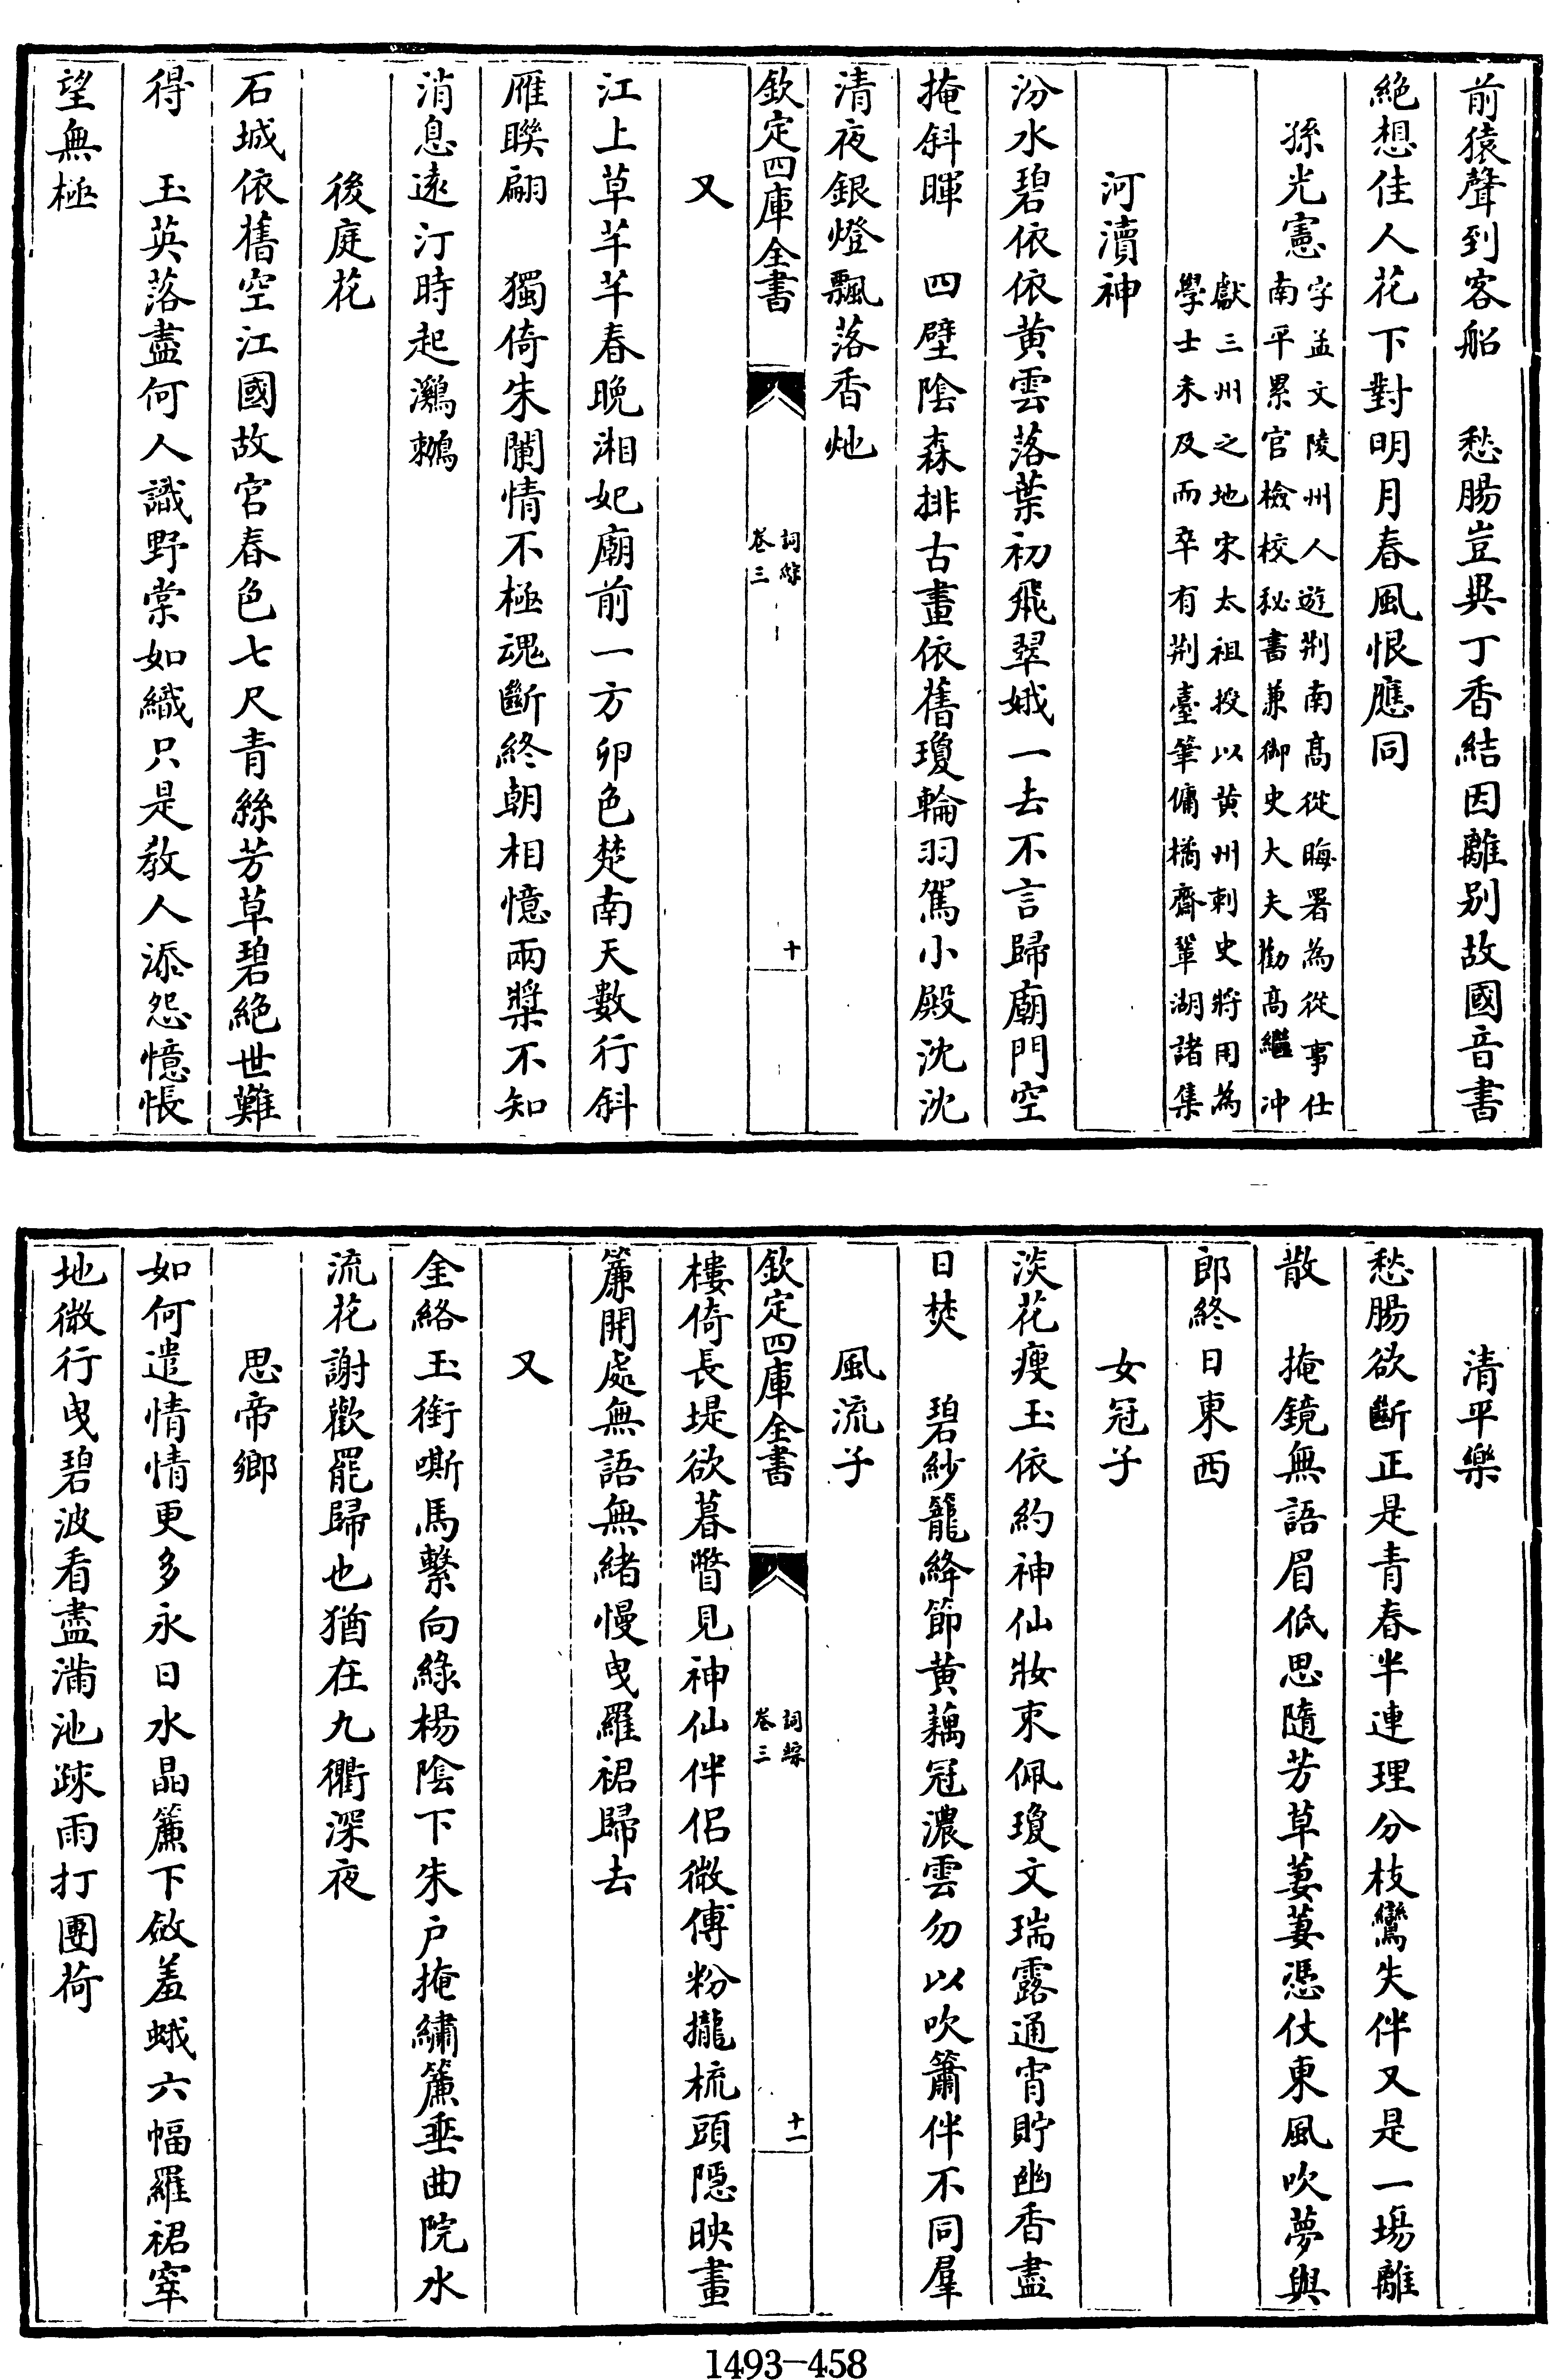 前猿聲到客船　愁腸豈異丁香結因離别故國音書
絶想佳人花下對明月春風恨應同
孫光憲字孟文陵州人遊荆南髙從晦署為從事仕
南平累官檢校秘書兼御史大夫勸髙繼冲
獻三州之地宋太祖授以黄州刺史將用為
學士未及而卒有荆臺筆傭橘齋鞏湖諸集
河瀆神
汾水碧依依黄雲落葉初飛翠娥一去不言歸廟門空
掩斜暉　四壁陰森排古畫依舊瓊輪羽駕小殿沈沈
清夜銀燈飄落香灺
欽定四庫全書
詞綜
卷三
十
又
江上草芊芊春晚湘妃廟前一方卵色楚南天數行斜
雁聨翩　獨倚朱闌情不極魂斷終朝相憶兩槳不知
消息逺汀時起鸂鶒
後庭花
石城依舊空江國故宫春色七尺青絲芳草碧絶世難
得　玉英落盡何人識野棠如織只是教人添怨憶悵
望無極
清平樂
愁腸欲斷正是青春半連理分枝鸞失伴又是一塲離
散　掩鏡無語眉低思隨芳草萋萋憑仗東風吹夢與
郎終日東西
女冠子
淡花瘦玉依約神仙妝束佩瓊文瑞露通宵貯幽香盡
日焚　碧紗籠絳節黄藕冠濃雲勿以吹簫伴不同羣
風流子
欽定四庫全書
詞綜
卷三
十一
樓倚長堤欲暮瞥見神仙伴侣微傅粉攏梳頭隱映畫
簾開處無語無緒慢曳羅裙歸去
又
金絡玉銜嘶馬繫向綠楊陰下朱户掩繡簾垂曲院水
流花謝歡罷歸也猶在九衢深夜
思帝鄉
如何遣情情更多永日水晶簾下斂羞蛾六幅羅裙窣
地微行曳碧波看盡滿池疎雨打團荷
1493-458